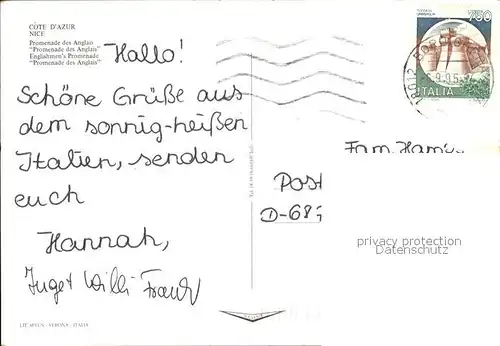 CÔTE D'AZUR
NICE
Promenade des Anglais
"Promenade des Anglais"
Englishmen's Promenade
"Promenade des Anglais"
Hallo!
Schöne Grüße aus
dem sonnig-heißen
Italien, senden
euch
Hannah,
Willi
750
ITALIA
18012
Fam.
Post
D-68
privacy protection
Datenschutz
VERONA - ITALIA